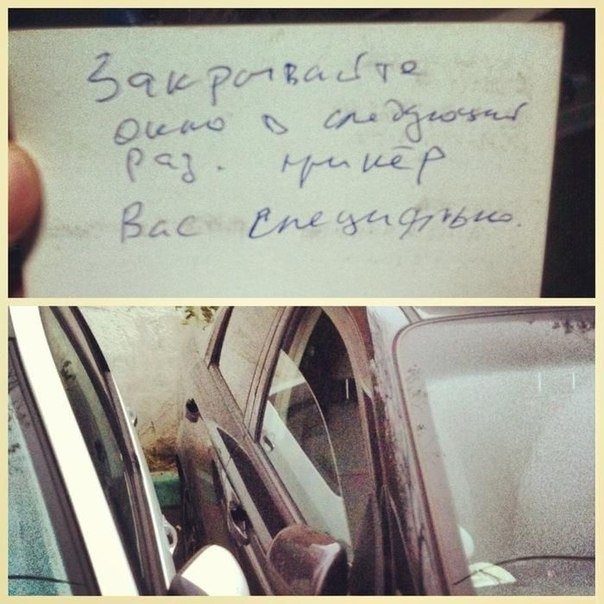 Закрывайте
окно в следующий
раз. припёр
Вас специально.